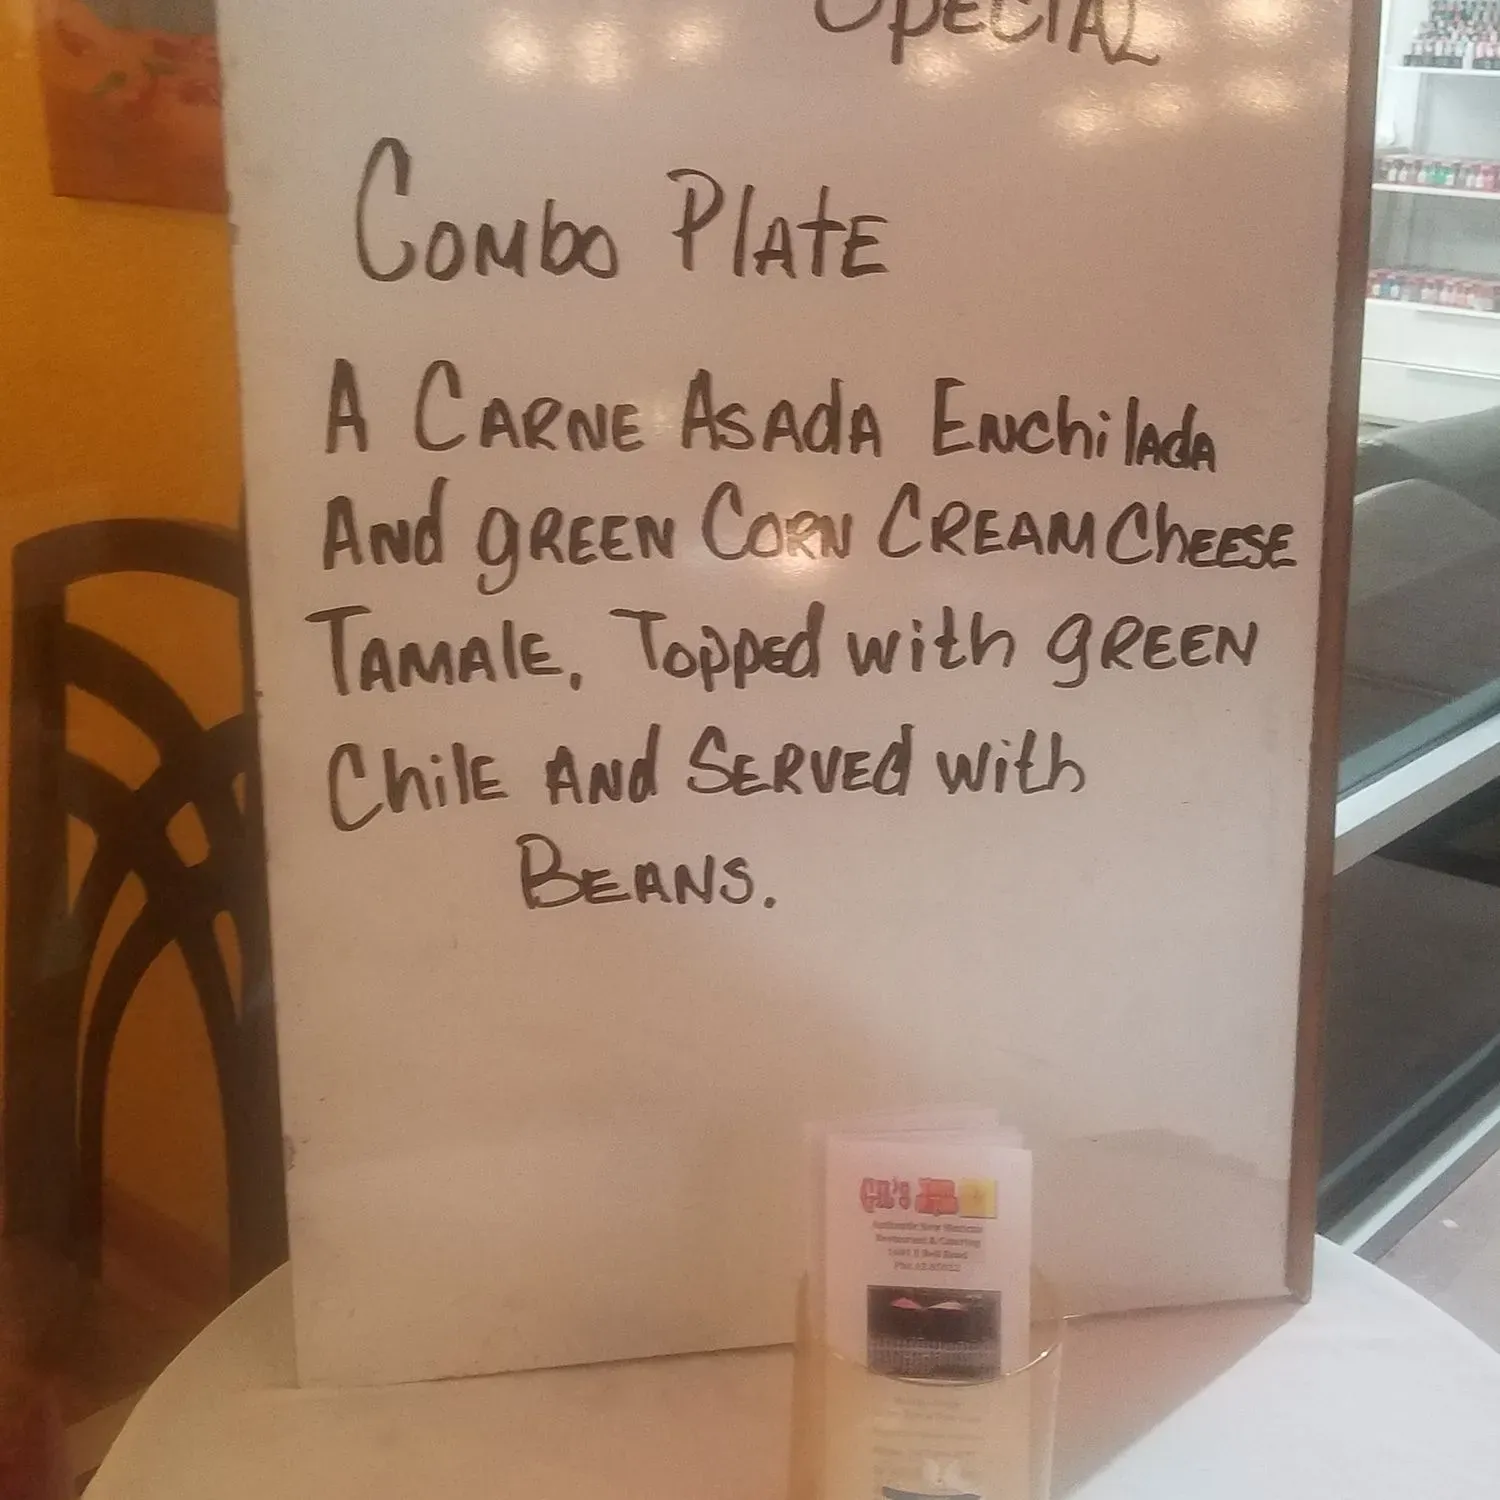 Special
Combo Plate
A Carne Asada Enchilada
And green Corn Cream Cheese
Tamale. Topped with green
Chile And Served with
Beans.
Authentic New Mexican
Restaurant & Catering